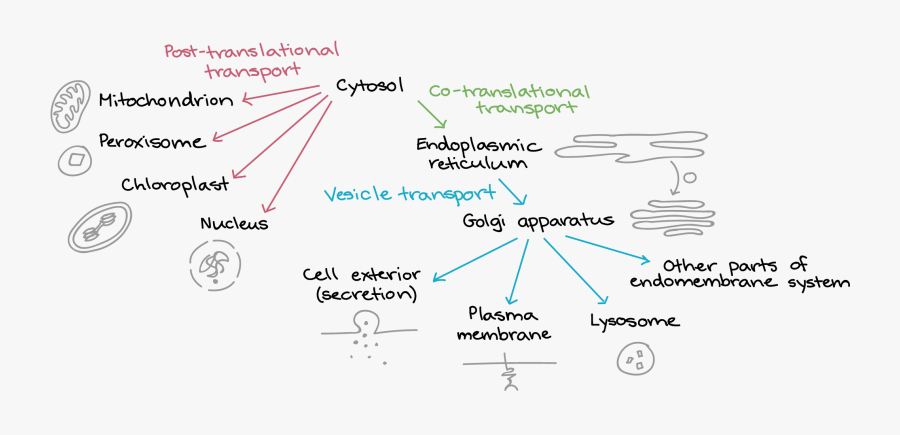 Post-translational
transport
Cytosol
Mitochondrion
Co-translational
transport
Peroxisome
Endoplasmic
reticulum
Chloroplast
Vesicle transport
Nucleus
Golgi apparatus
Cell exterior
(secretion)
Other parts of
endomembrane system
Plasma
membrane
Lysosome